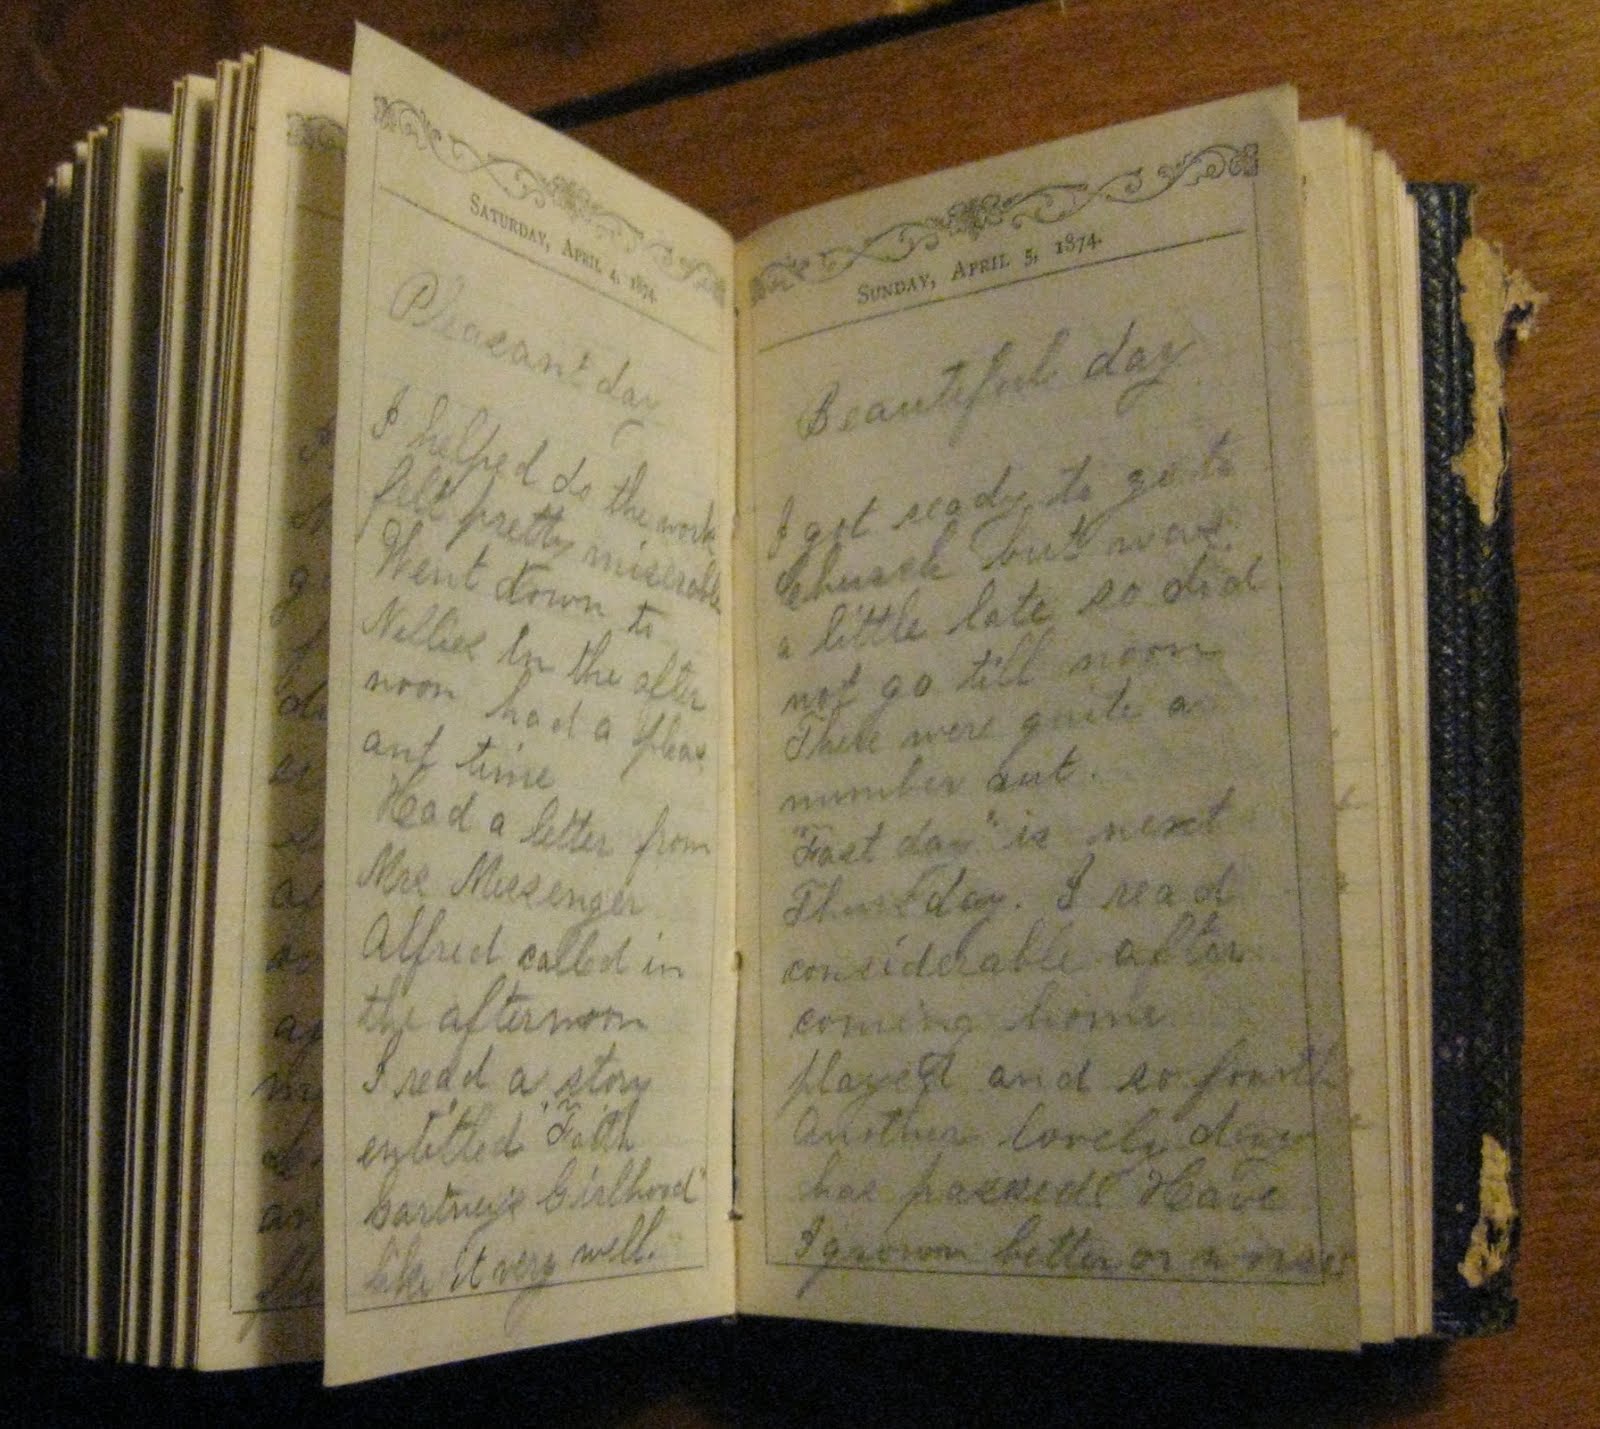 SATURDAY, APRIL 4, 1874.
Pleasant day
I helped do the work
felt pretty miserable
Went down to
Nellies in the after
noon had a pleas
ant time
Had a letter from
Mrs Messenger
Alfred called in
the afternoon
I read a story
entitled "Faith
Gartney's Girlhood"
like it very well.
SUNDAY, APRIL 5, 1874.
Beautiful day
I got ready to go to
Church but was
a little late so did
not go till noon
There were quite a
number out.
"Fast day" is next
Thursday. I read
considerable after
coming home
played and so fourth
Another lovely day
has passed Have
I grown better or worse